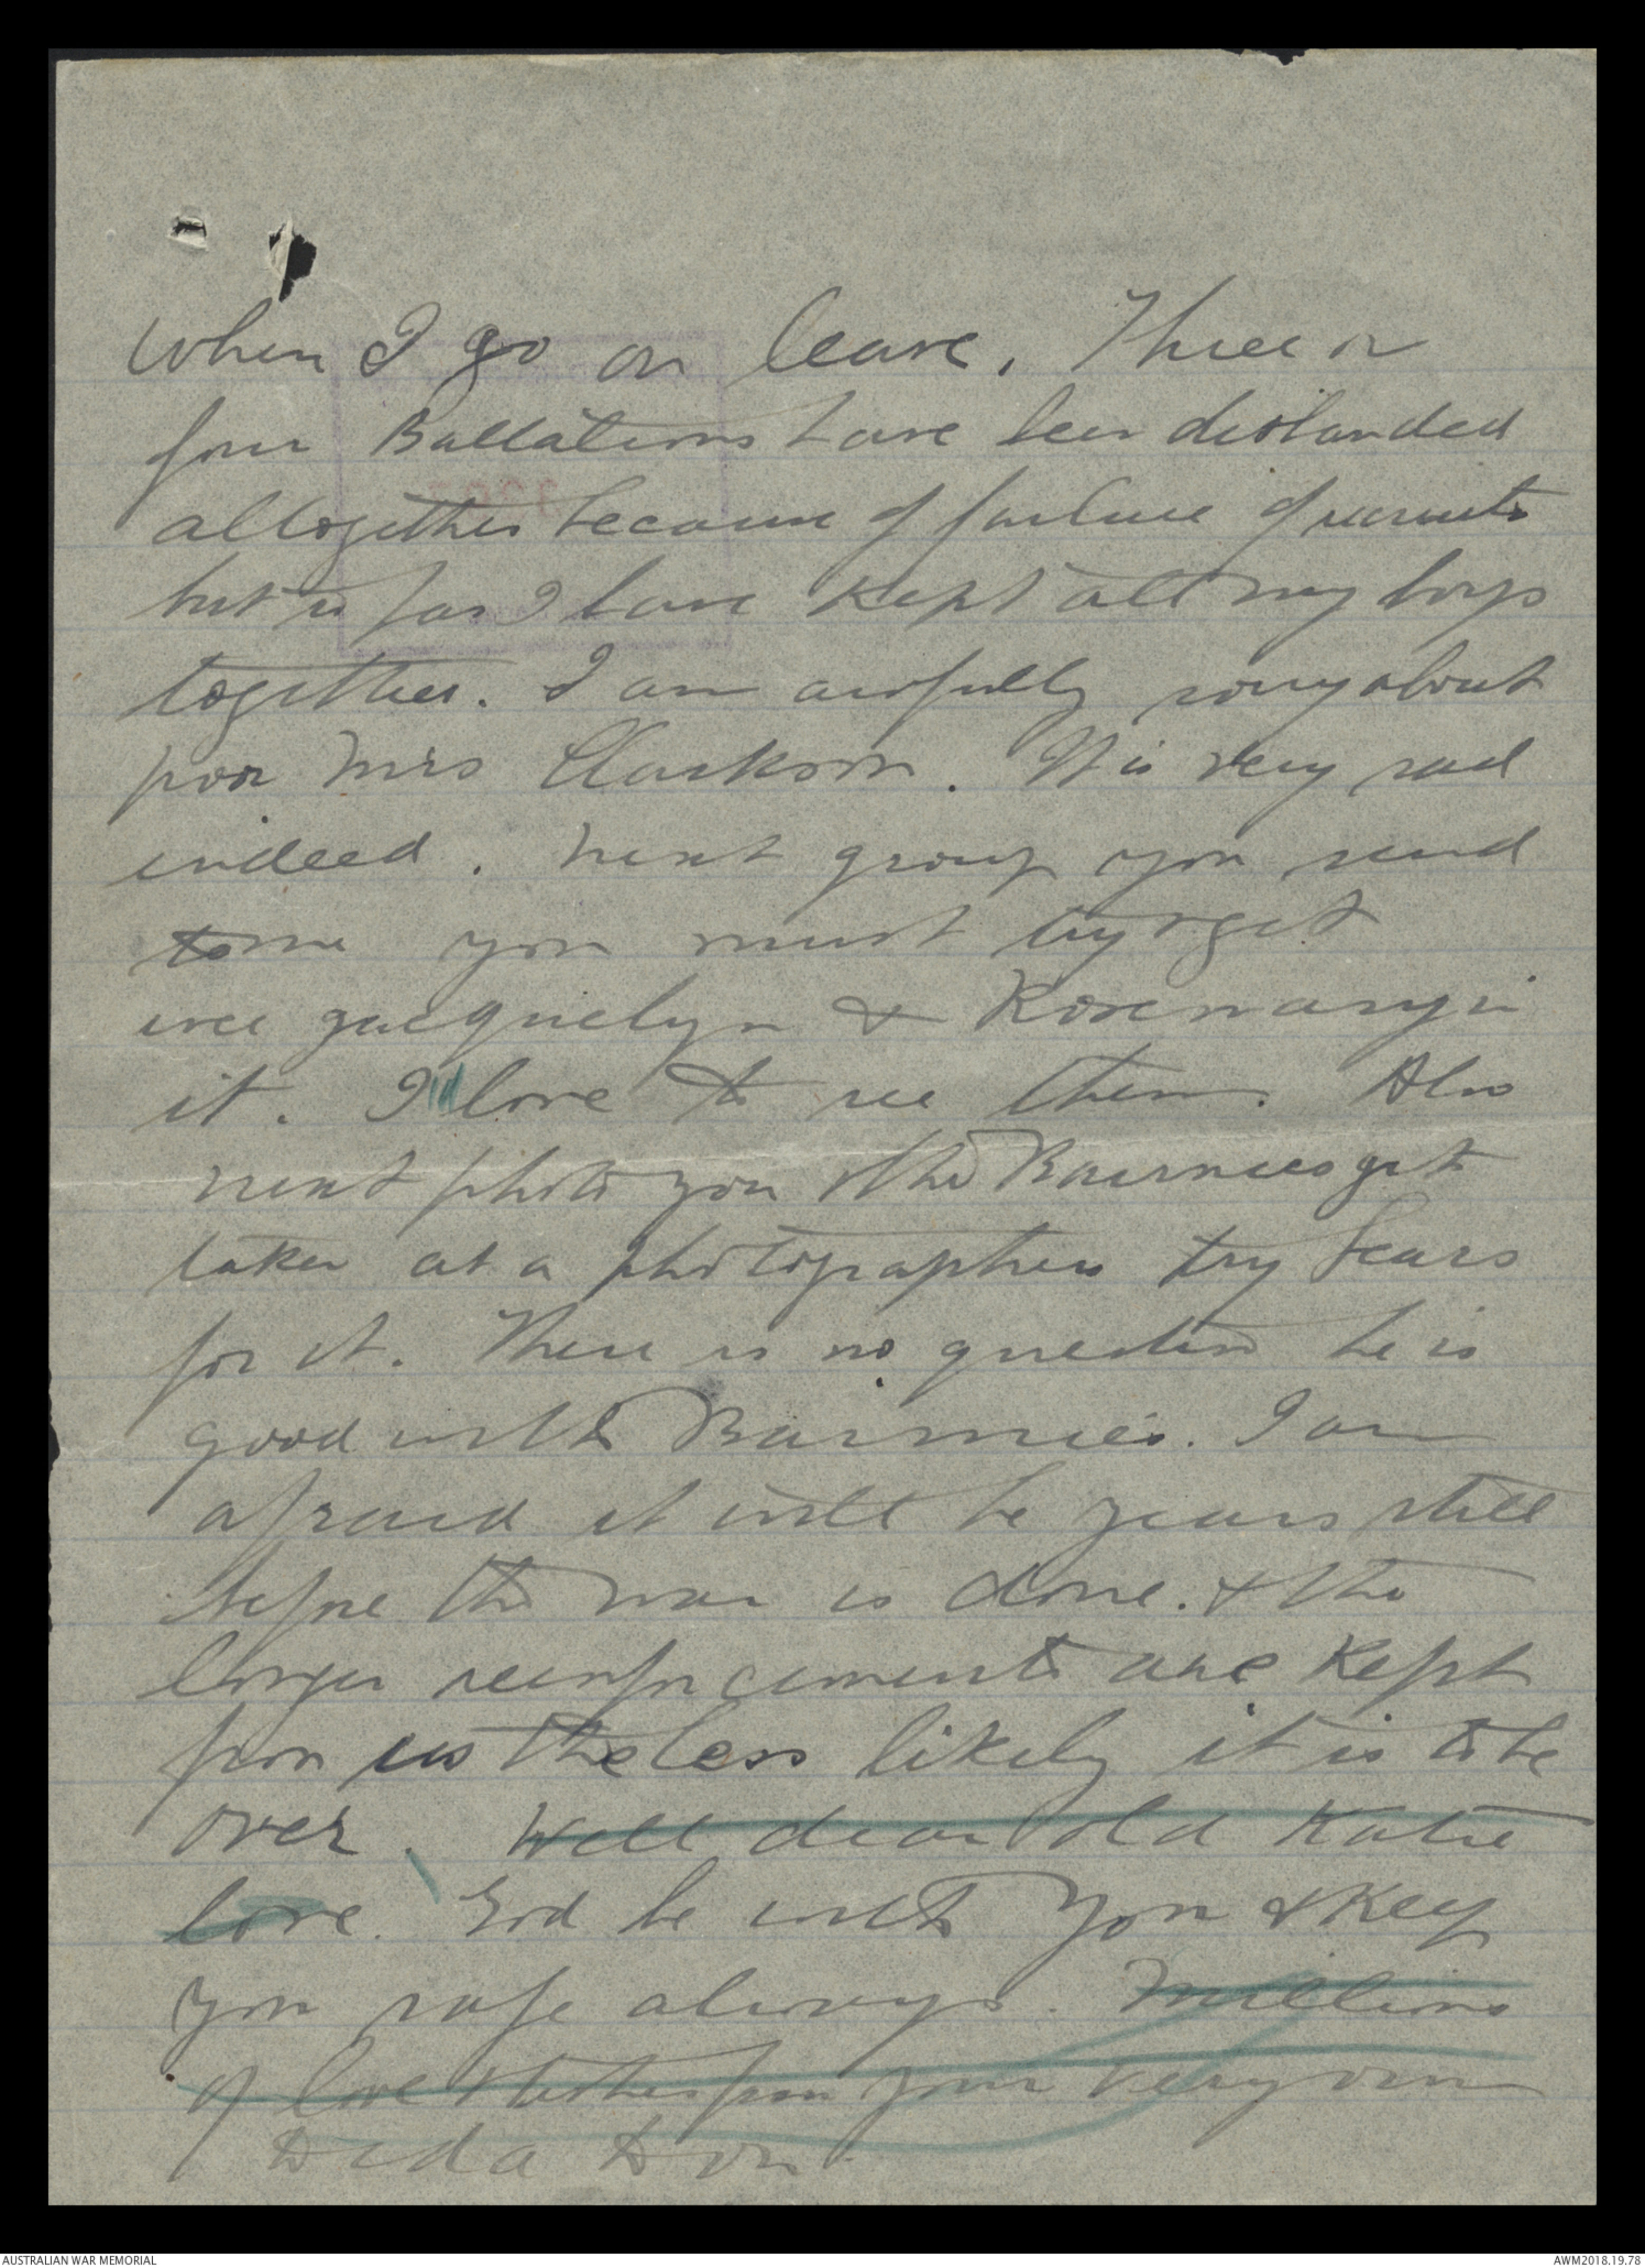 When I go on leave. Three or
four Battalions have been disbanded
altogether because of failure of recruits
but so far I have kept all my boys
together. I am awfully sorry about
poor Mrs Clarkson. It is very sad
indeed. Next group you send
to me you must try & get
wee Jacquelyn & Rosemary in
it. I'd love to see them. Also
next photo you & the Bairnies get
taken at a photographers try Sears
for it. There is no question he is
good with Bairnies. I am
afraid it will be years still
before the war is done. & the
longer reinforcements are kept
from us the less likely it is to be
over. Well dear old Katie
love. God be with you & keep
you safe always. Millions
of love & kisses from your very own
Dida Don.
AUSTRALIAN WAR MEMORIAL
AWM2018.19.78